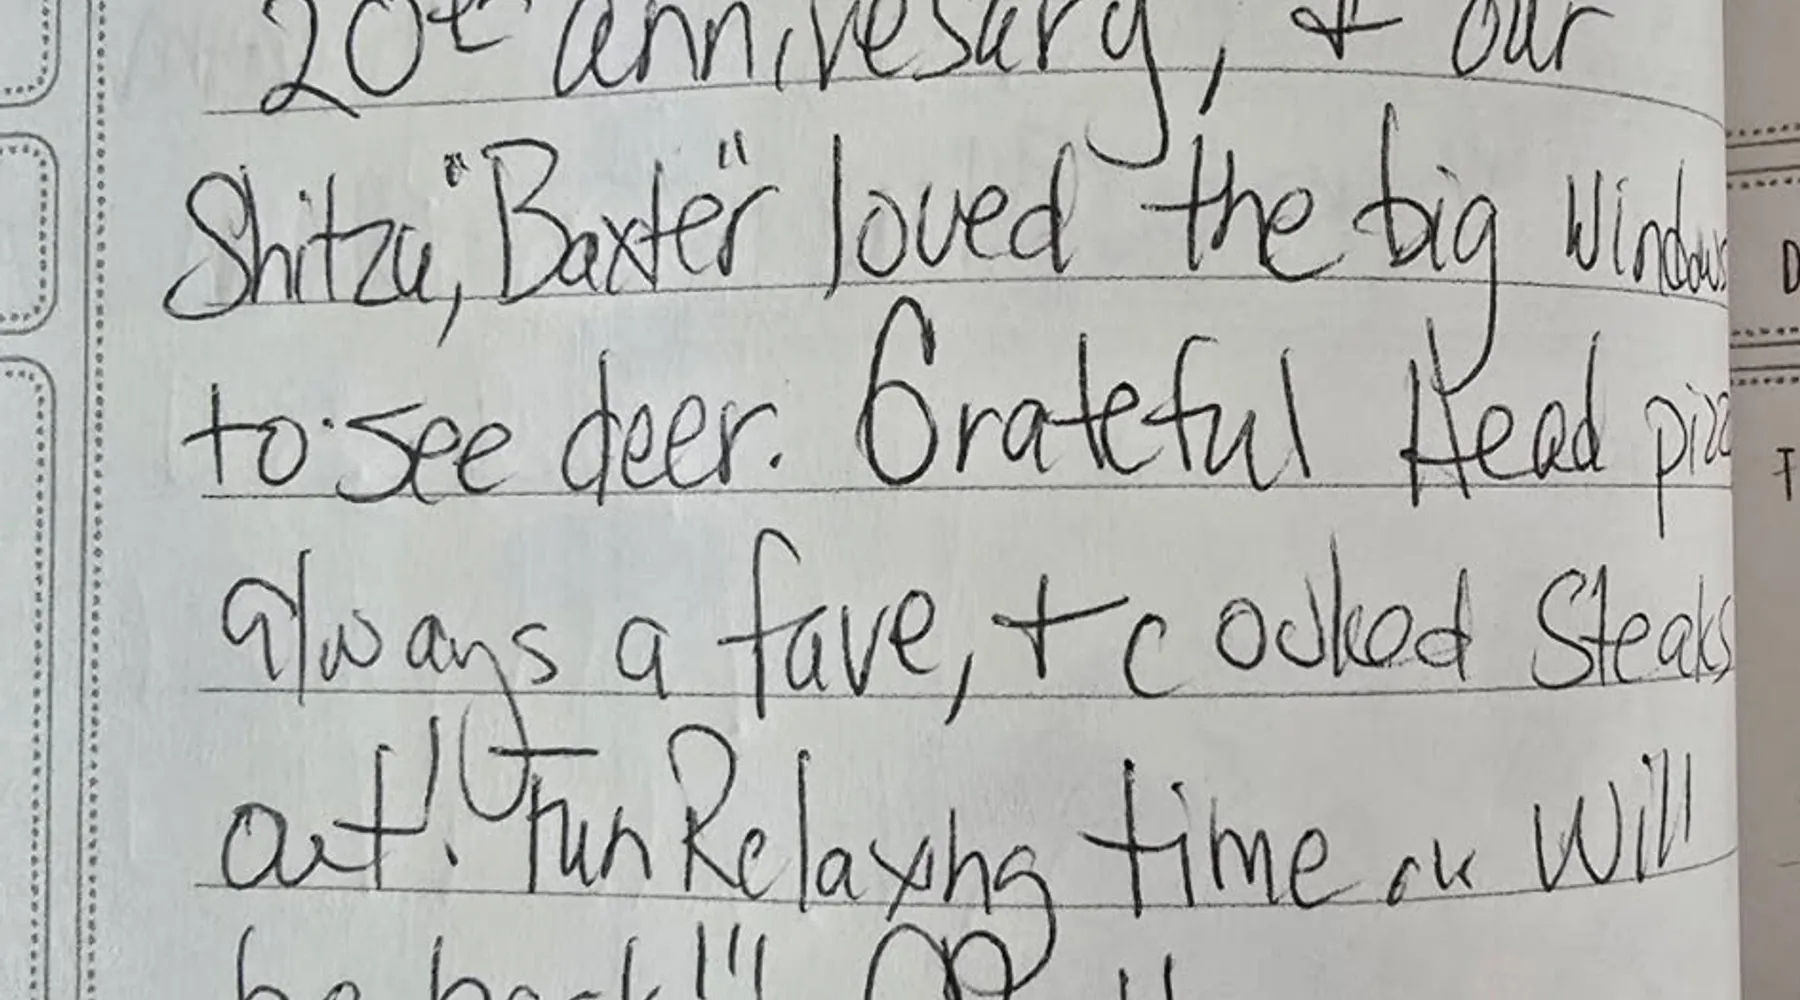 20th annivesary, + our
Shitzu, "Baxter" loved the big windows
to see deer. Grateful Head
always a fave, + cooked Steaks
out! Fun Relaxing time Will
be back!!!
D
T